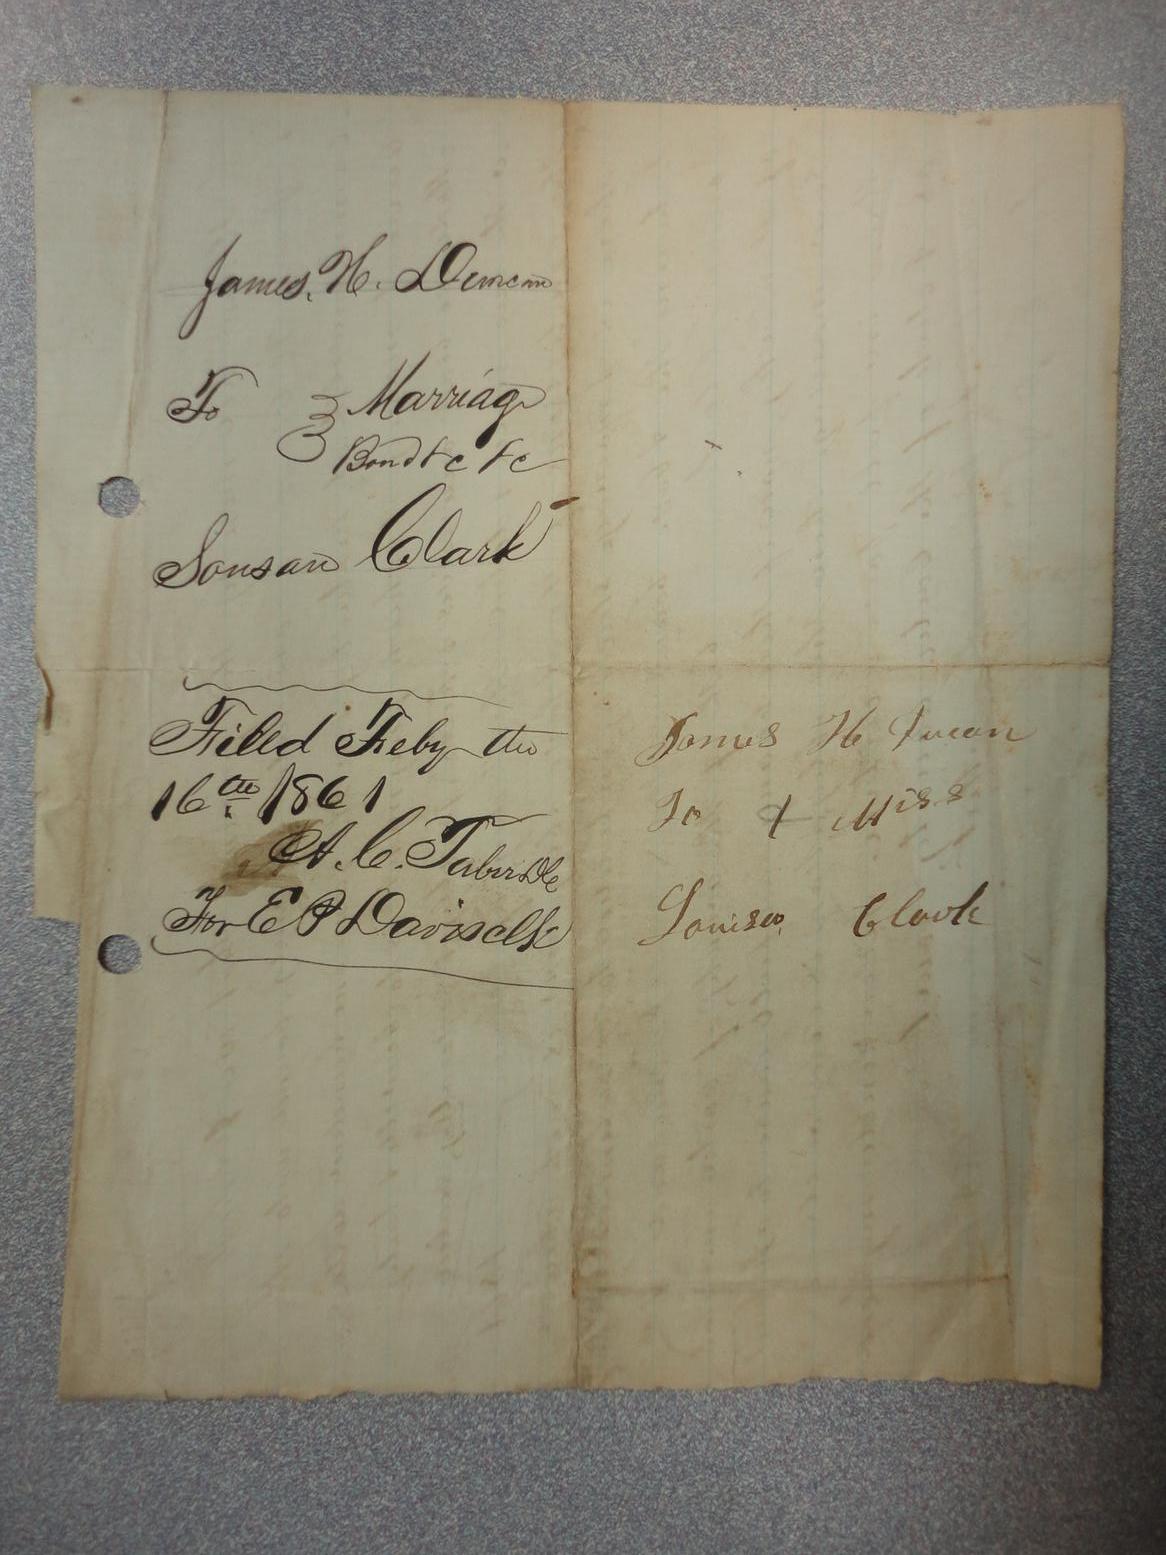 James. H. Duncan
To } Marriage
Bond &c &c
Sousan Clark
Filed Feby the
16th 1861
A. C. Tabor DC
For E P Davis clk
James H Duean
To & Miss
Louisa Clark